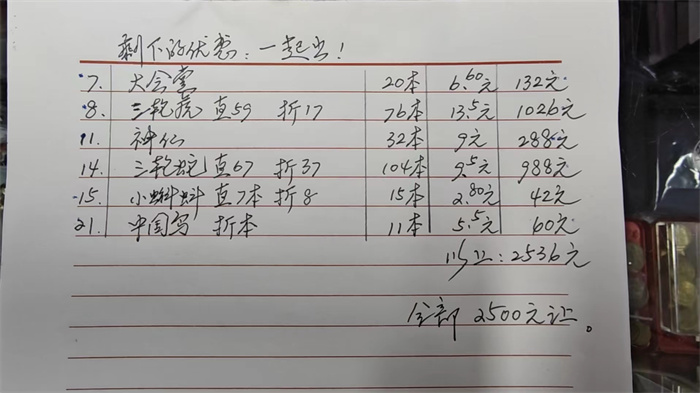 剩下的优惠:一起出!
7. 大会堂 20本 6.60元 132元
8. 三轮虎 直59 折17 76本 13.5元 1026元
11. 神仙 32本 9元 288元
14. 三轮蛇 直67 折37 104本 9.5元 988元
15. 小蝌蚪 直7本 折8 15本 2.80元 42元
21. 中国鸟 折本 11本 5.5元 60元
以上:2536元
全部 2500元让。